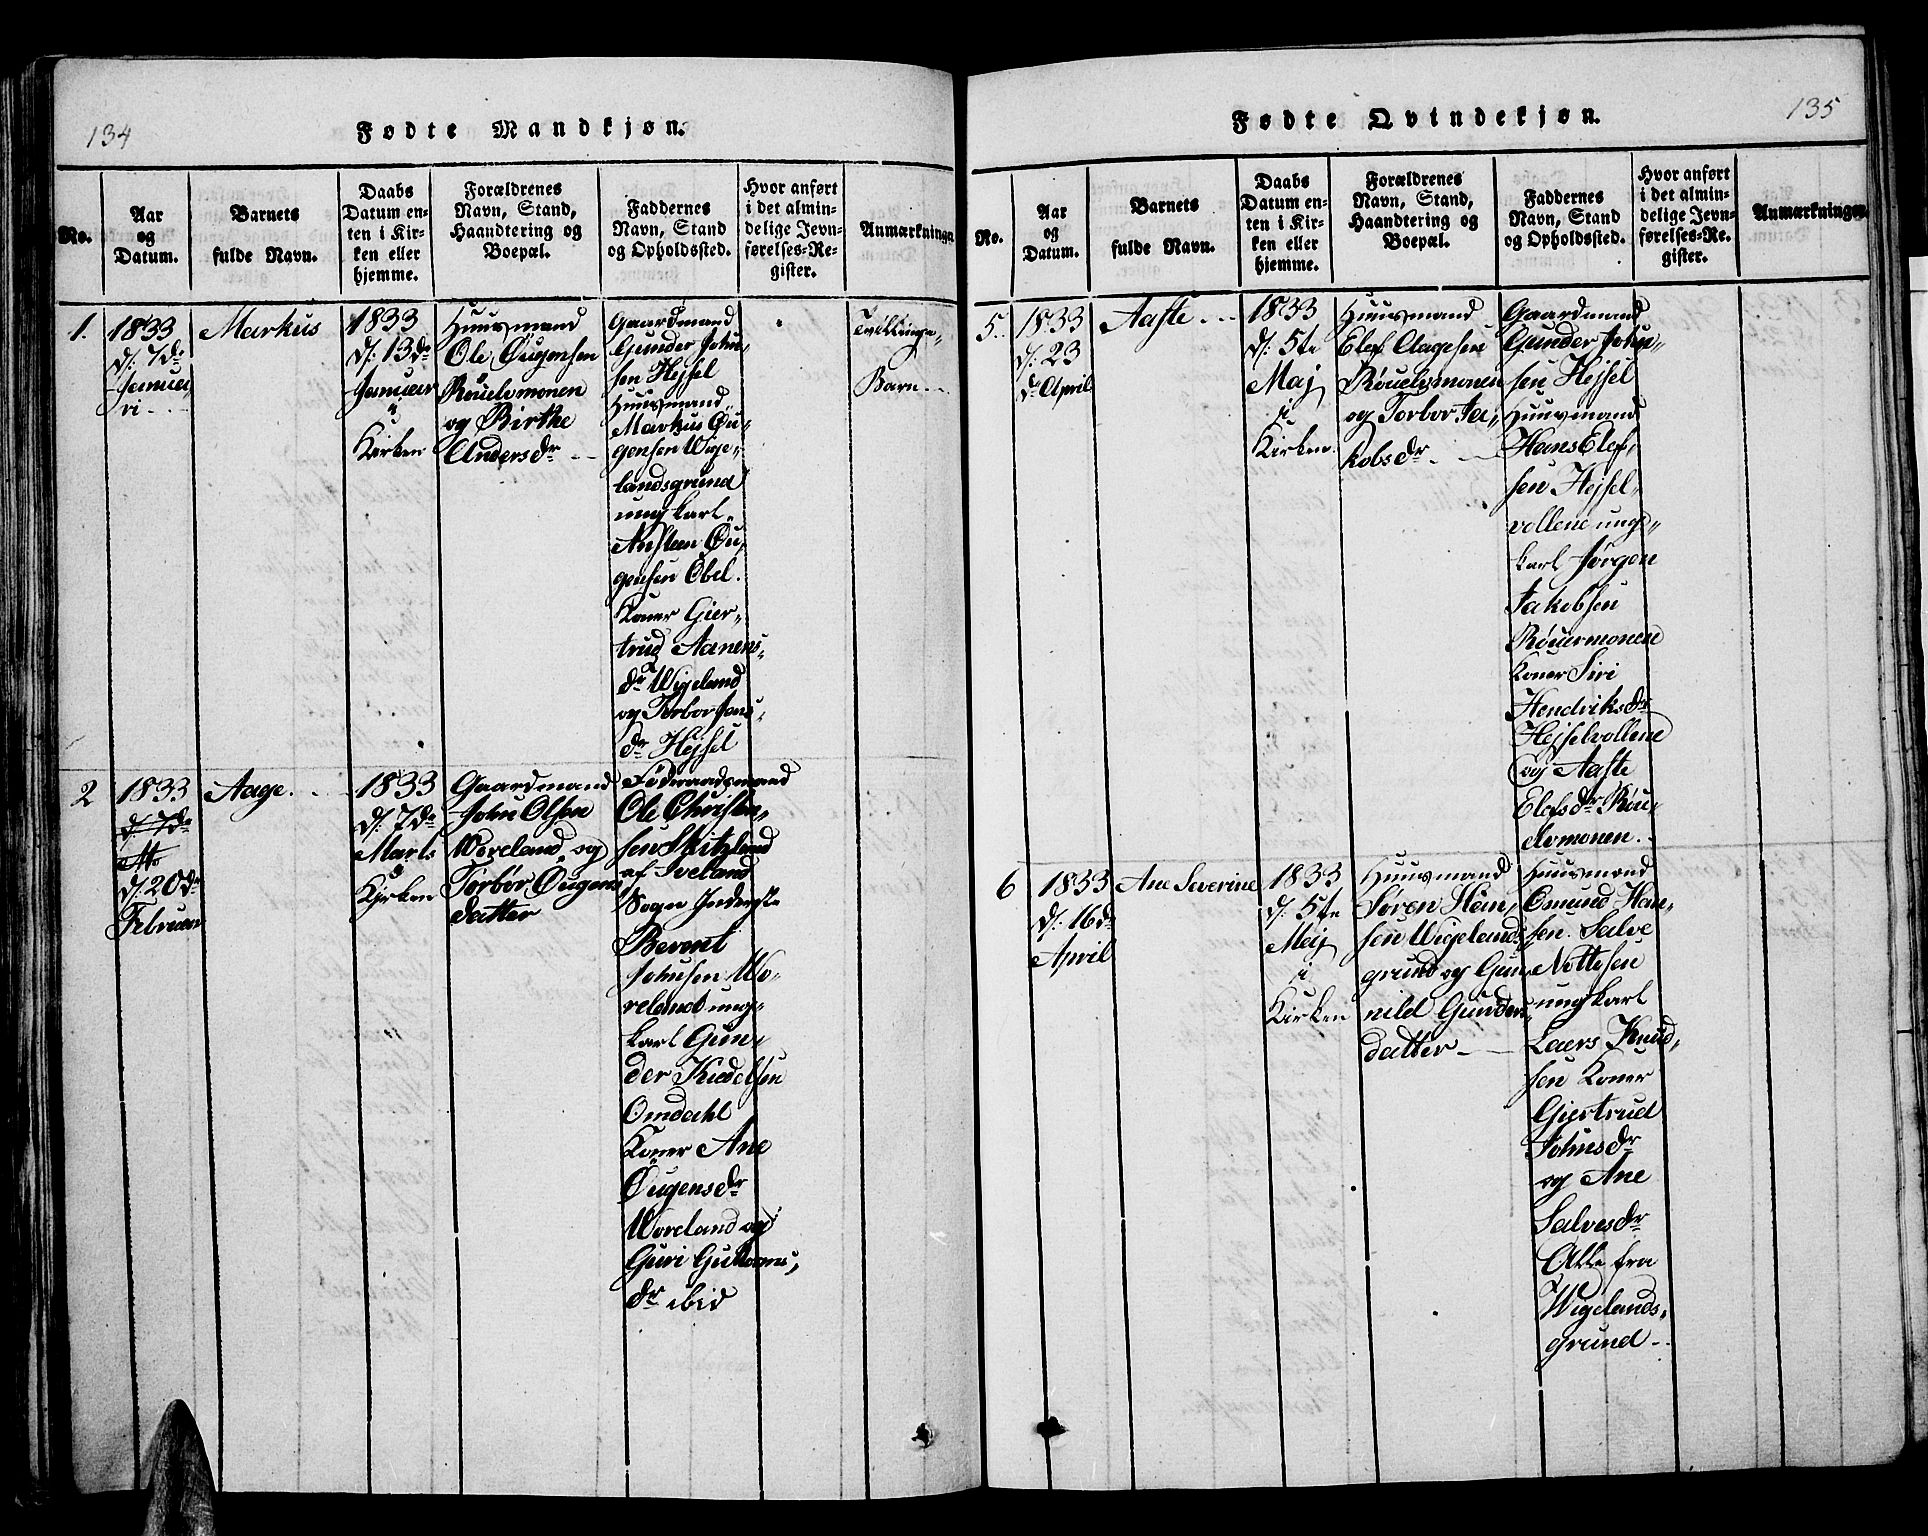 134
Fødte Mandkjøn.
No.
Aar
og
Datum.
Barnets
fulde Navn.
Daabs
Datum en-
ten i Kir-
ken eller
hjemme.
Forældrenes
Navn, Stand,
Haandtering og
Boepæl.
Faddernes
Navn, Stand
og Opholdssted.
Hvor anført
i det almin-
delige Jevn-
førelses-Re-
gister.
Anmærkninge
1.
1833
d: 7de
Januar
ri
Markus
1833
d: 13de
Januar
i
Kirken
Huusmand
Ole Øugensen
Røuelsmonen
og Birthe
Anders dr
Gaardmand
Gunder John-
sen Hejsel
Huusmand
Markus Øu-
gensen Wige-
landsgrund
ungkarl
Austen Øu-
gensen Øbel.
Koner Gier-
trud Aanens-
dr Wigeland
og Torbor Jens-
dr Hejsel
Tvillinge-
Barn
2
1833
d: 7de
d: 20de
Februar
Aage
1833
d: 7de
Marts
i
Kirken
Gaardmand
John Olsen
Woreland, og
Torbor Øugens
datter
Føderaadsmand
Ole Christen-
sen
af Iveland
Sogn Inderste
Bernt
Johnsen Wo-
reland ung-
karl Gun-
der
Omdahl
Koner Ane
Øugens dr
Woreland og
Guri Guttorms-
dr ibid
135
Fødte Qvindekjøn.
No.
Aar
og
Datum.
Barnets
fulde Navn.
Daabs
Datum en-
ten i Kir-
ken eller
hjemme.
Forældrenes
Navn, Stand,
Haandtering og
Boepæl.
Faddernes
Navn, Stand
og Opholdssted.
Hvor anført
i det almin-
delige Jevn-
førelses-Re-
gister.
Anmærkninger.
5.
1833
d: 23
de April
Aaste
1833
d: 5te
Maj
i
Kirken
Huusmand
Elef Aagesen
Røuelsmonen
og Torbor Ja-
kobs dr
Gaardmand
Gunder John-
sen Hejsel
Huusmand
Hans Elef-
sen Hejsel-
vollene ung-
karl Jørgen
Jakobsen
Røuermonene
Koner Siri
Hendriks dr
Hejselvollene
og Aaste
Elefs dr Røu-
elsmonen.
6
1833
d: 16de
April
Ane Severine
1833
d: 5te
Maj
i
Kirken
Huusmand
Søren Stein-
sen Wigelands
grund og Gun-
nild Gunders
datter
Huusmand
Omund Han-
sen. Salve
Nottesen
ungkarl
Laers Knud-
sen Koner
Giertrud
Johns dr
og Ane
Salves dr
Alle fra
Wigelands-
grund